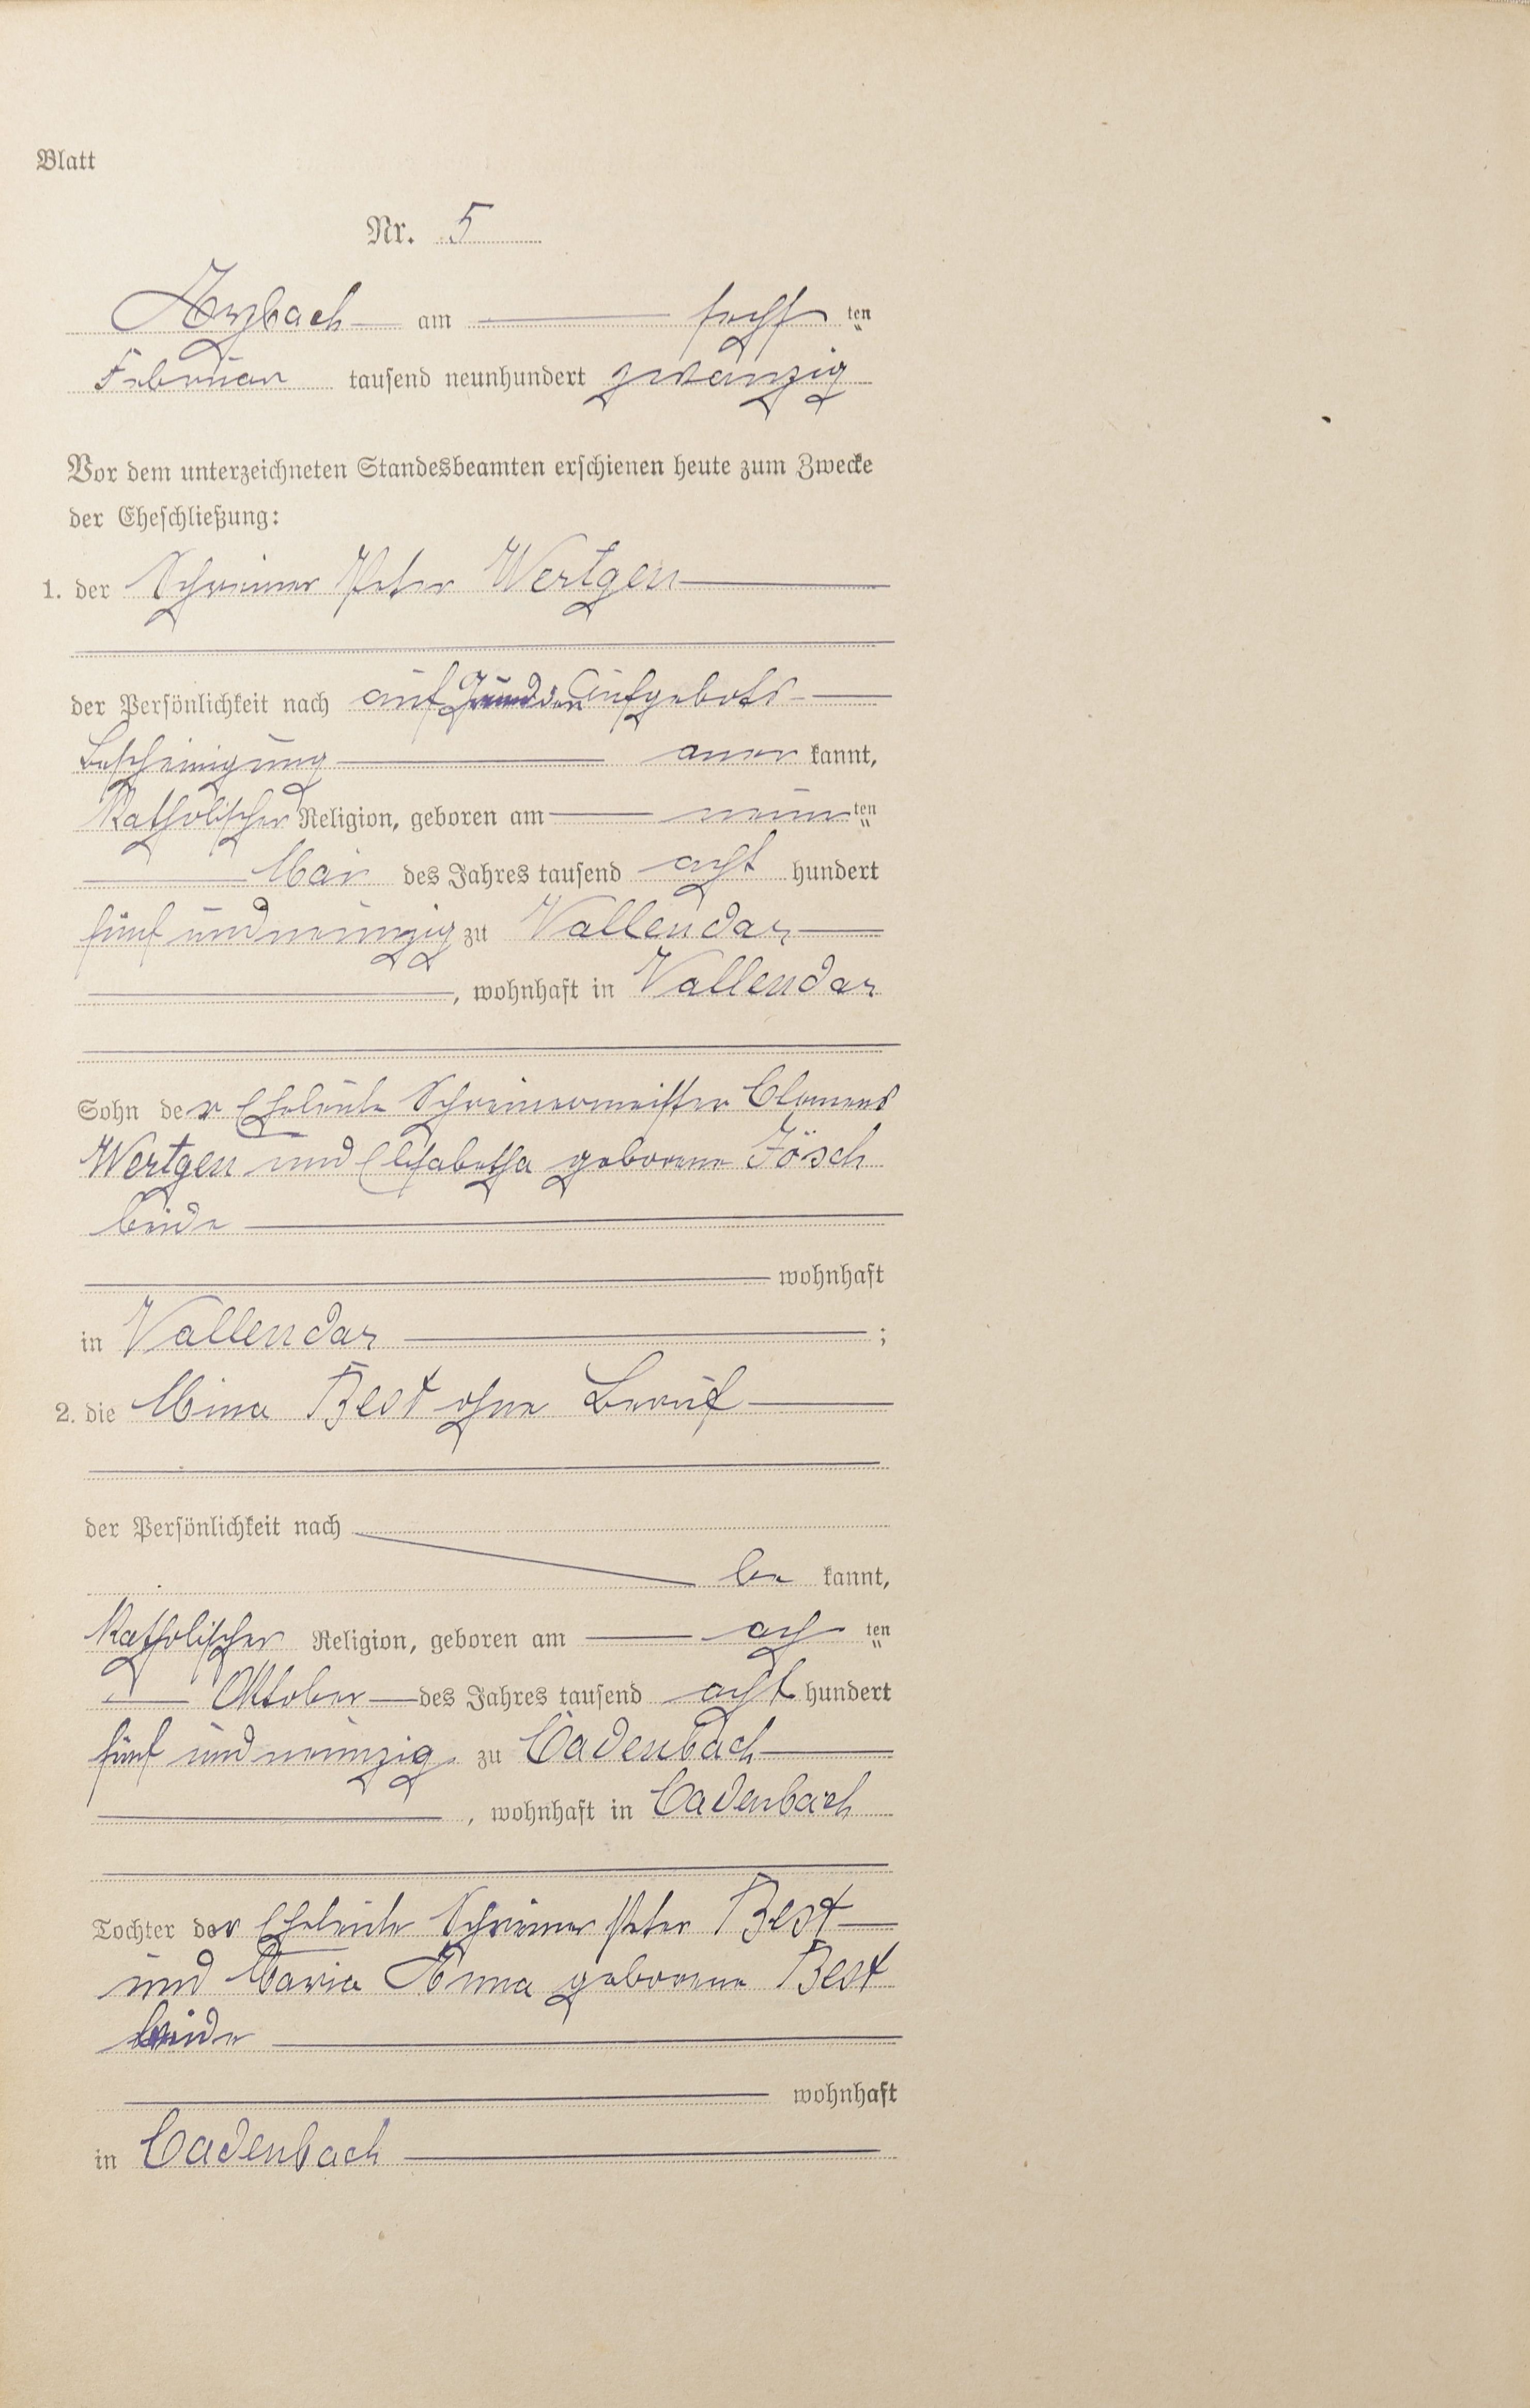 Blatt
Nr. 5
Arzbach am sechsten
Februar tausend neunhundert zwanzig
Vor dem unterzeichneten Standesbeamten erschienen heute zum Zwecke
der Eheschließung:
1. der Schreiner Peter Wertgen
der Persönlichkeit nach auf Grund der Aufgebots-
bescheinigung aner kannt,
Katholischer Religion, geboren am neun ten
Mai des Jahres tausend acht hundert
fünf und neunzig zu Vallendar
, wohnhaft in Vallendar
Sohn der Eheleute Schreinermeister Clemens
Wertgen und Elisabetha geborene Jösch
beide
wohnhaft
in Vallendar ;
2. die Mina Best ohne Beruf
der Persönlichkeit nach
be kannt,
Katholischer Religion, geboren am ach ten
Oktober des Jahres tausend acht hundert
fünf und neunzig zu Cadenbach
, wohnhaft in Cadenbach
Tochter der Eheleute Schreiner Peter Best
und Maria Anna geborene Best
beide
wohnhaft
in Cadenbach